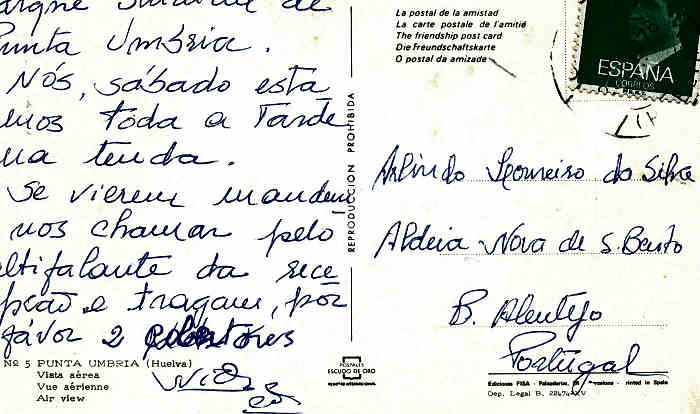 Parque Sindical de
Punta Umbria.
Nós, sábado esta
mos toda a Tarde
na tenda.
Se vierem mandem
nos chamar pelo
altifalante da rece
pção e tragam, por
favor 2
Nº 5 PUNTA UMBRIA (Huelva)
Vista aérea
Vue aérienne
Air view
REPRODUCCION PROHIBIDA
POSTALES
ESCUDO DE ORO
La postal de la amistad
La carte postale de l'amitié
The friendship post card
Die Freundschaftskarte
O postal da amizade
ESPAÑA
CORREOS
Arlindo Loureiro da Silva
Aldeia Nova de S. Bento
B. Alentejo
Portugal
Ediciones FISA - Palaudarias, 26 - Barcelona - Printed in Spain
Dep. Legal B. 22474-XV